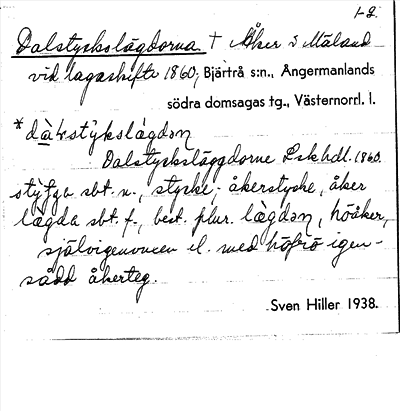 1-2.
Dalstyckslägdorna † Åker i Mäland
vid lagaskifte 1860; Bjärtrå s:n., Ångermanlands
södra domsagas tg., Västernorrl. l.
*dà'ɫstỳkslágdɔn
Dalstycksläggdorne Lskhdl. 1860.
sbt. n., stycke; åkerstycke, åker
lægda sbt. f., best. plur. lægdɔn, höåker,
självigenvuxen el. med höfrö igen-
sådd åkerteg.
Sven Hiller 1938.